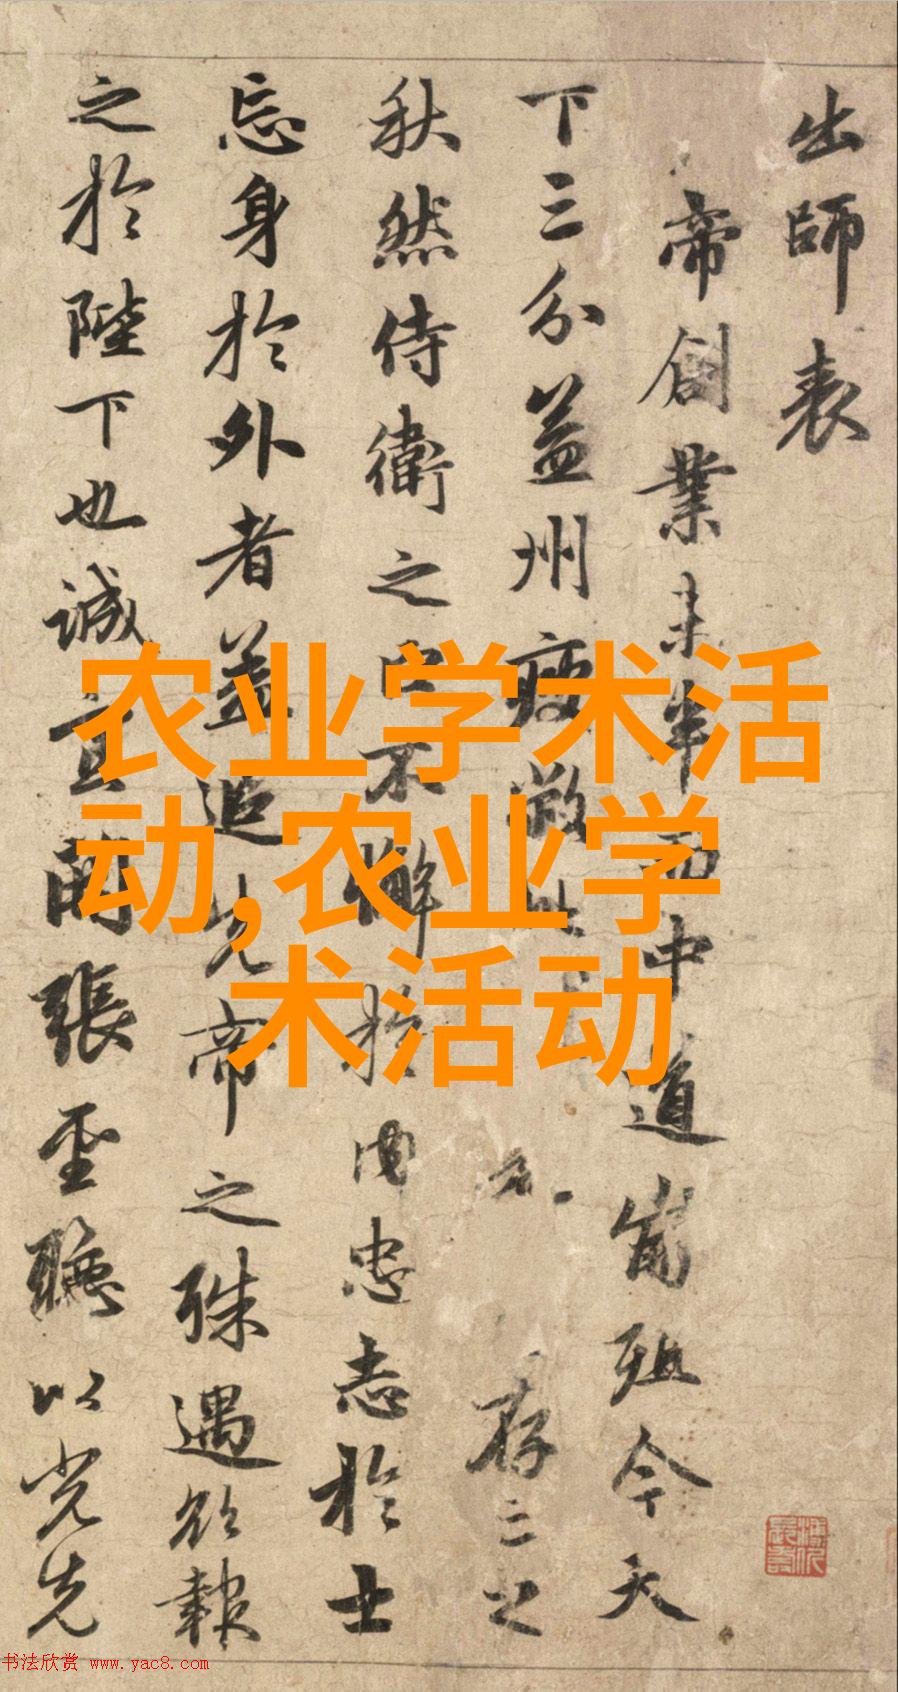 出師表
帝創業未半而中道崩殂今天
下三分益州疲敝此存亡之
秋然侍衛之臣不懈於内忠志於士
忘身於外者蓋追先帝之殊遇欲報
之於陛下也誠宜開張聖聽以光先
农业学术活
动,农业学
术活动
书法欣赏 www.yac8.com